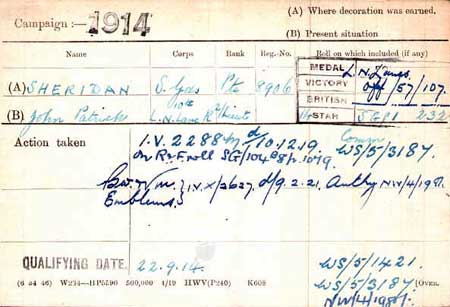 Campaign :— 1914
(A) Where decoration was earned.
(B) Present situation
Name Corps Rank Reg. No. Roll on which included (if any)
MEDAL
VICTORY
BRITISH
STAR
L.N. Lancs.
Off/57/107.
SG81 232
(A) SHERIDAN S. Gds Pte 8906
(B) John Patrick L. N. Lanc R. Lieut
10th
Action taken I.V. 2288 d/ 10.12.19. Comm
SG/104 WS/5/3187
I.V.X/2627. d/9.2.21. Authy NW/4/1981.
Emblems.
QUALIFYING DATE. 22.9.14. WS/5/1421.
WS/5/3187 [OVER.
NW/4/1981.
(6 34 46) W234—HP5590 500,000 4/19 HWV(P240) K608